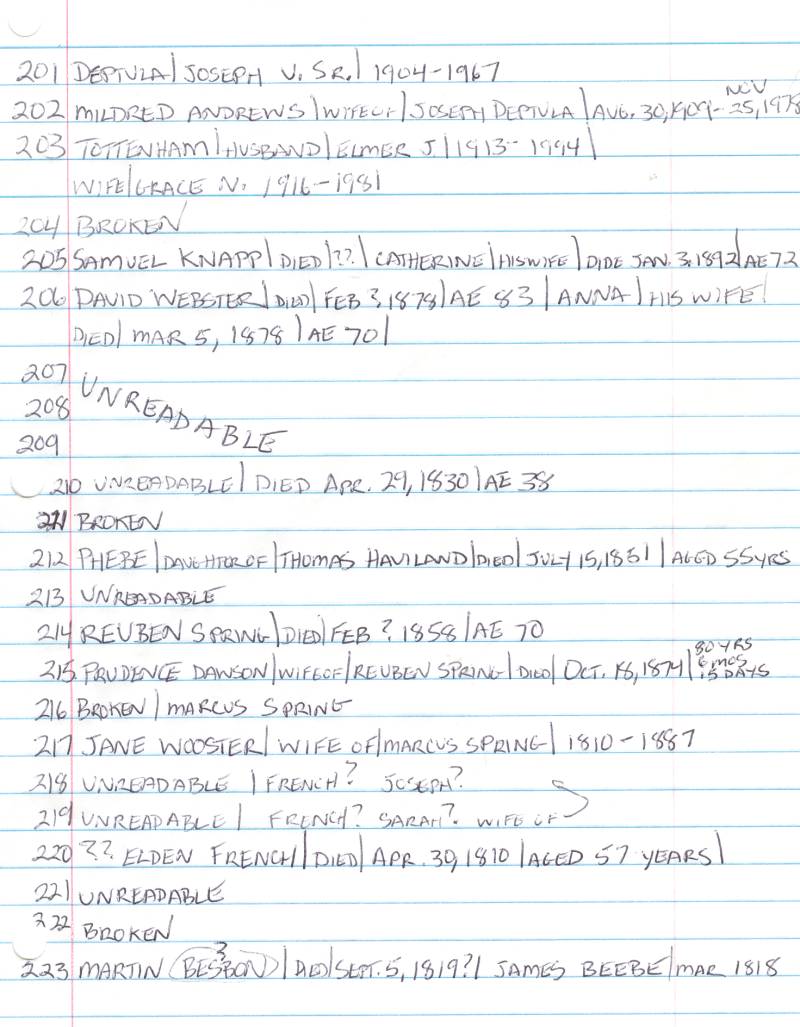 201 DEPTULA | JOSEPH V. SR. | 1904-1967
NOV
202 MILDRED ANDREWS | WIFE OF | JOSEPH DEPTULA | AUG. 30, 1909 - 25, 1978
203 TOTTENHAM | HUSBAND | ELMER J. | 1913 - 1994 |
WIFE | GRACE N. 1916-1981
204 BROKEN
205 SAMUEL KNAPP | DIED | ?? | CATHERINE | HIS WIFE | DIDE JAN. 3, 1892 | AE 72
206 DAVID WEBSTER | DIED | FEB ?, 1878 | AE 83 | ANNA | HIS WIFE |
DIED | MAR 5, 1878 | AE 70 |
207
208 UNREADABLE
209
210 UNREADABLE | DIED APR. 29, 1830 | AE 38
211 BROKEN
212 PHEBE | DAUGHTER OF | THOMAS HAVILAND | DIED | JULY 15, 1851 | AGED 55 YRS
213 UNREADABLE
214 REUBEN SPRING | DIED | FEB ? 1858 | AE 70
215 PRUDENCE DAWSON | WIFE OF | REUBEN SPRING | DIED | OCT. 18, 1874 | 80 YRS
6 MOS
15 DAYS
216 BROKEN | MARCUS SPRING
217 JANE WOOSTER | WIFE OF | MARCUS SPRING | 1810 - 1887
218 UNREADABLE | FRENCH? JOSEPH?
219 UNREADABLE | FRENCH? SARAH? WIFE OF
220 ?? ELDEN FRENCH | DIED | APR. 30, 1810 | AGED 57 YEARS |
221 UNREADABLE
222 BROKEN
?
223 MARTIN (BESBON) | DIED | SEPT. 5, 1819? | JAMES BEEBE | MAR 1818